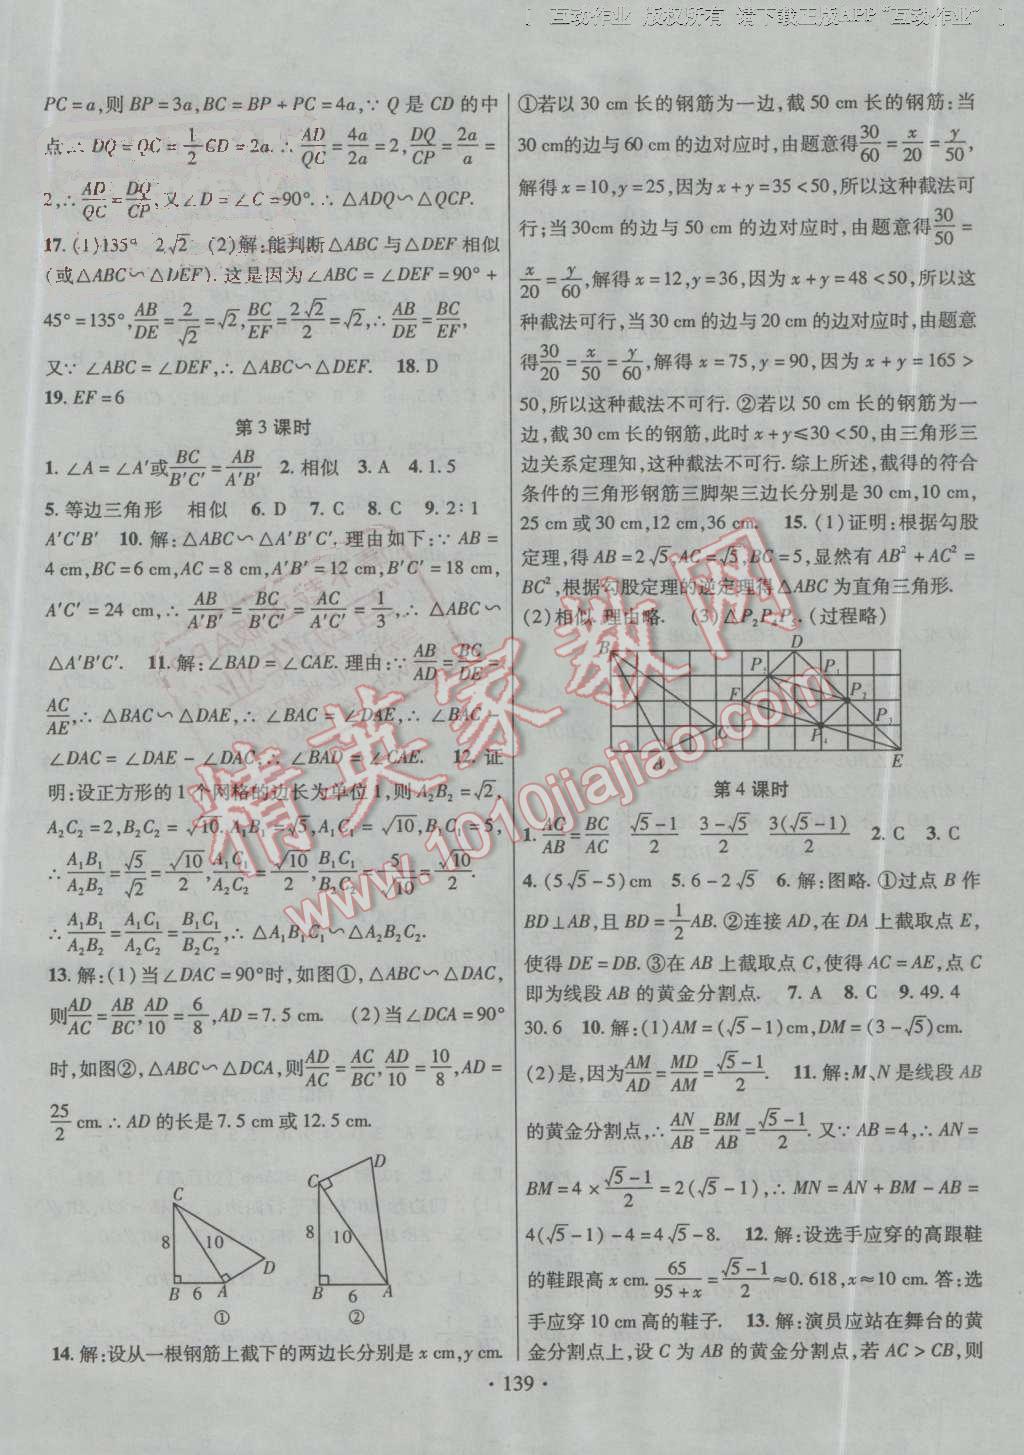 [ 互动作业 版权所有 请下载正版APP“互动作业” ]
PC=a,则 BP=3a,BC=BP+PC=4a,∵ Q 是 CD 的中
点,∴ DQ=QC=1/2CD=2a.∴ AD/QC=4a/2a=2,DQ/CP=2a/a=
2,∴ AD/QC=DQ/CP,又∠D=∠C=90°.∴ △ADQ∽△QCP.
17. (1)135° 2√2 (2)解:能判断△ABC 与△DEF 相似
(或△ABC∽△DEF).这是因为∠ABC=∠DEF=90°+
45°=135°,AB/DE=2/√2=√2,BC/EF=2√2/2=√2,∴ AB/DE=BC/EF,
又∵ ∠ABC=∠DEF,∴ △ABC∽△DEF. 18. D
19. EF=6
第 3 课时
1. ∠A=∠A′或BC/B′C′=AB/A′B′ 2. 相似 3. A 4. 1.5
5. 等边三角形 相似 6. D 7. C 8. C 9. 2∶1
A′C′B′ 10. 解:△ABC∽△A′B′C′.理由如下:∵ AB=
4 cm,BC=6 cm,AC=8 cm,A′B′=12 cm,B′C′=18 cm,
A′C′=24 cm,∴ AB/A′B′=BC/B′C′=AC/A′C′=1/3,∴ △ABC∽
△A′B′C′. 11. 解:∠BAD=∠CAE.理由:∵ AB/AD=BC/DE=
AC/AE,∴ △BAC∽△DAE,∴ ∠BAC=∠DAE,∴ ∠BAC-
∠DAC=∠DAE-∠DAC,∴ ∠BAD=∠CAE. 12. 证
明:设正方形的 1 个网格的边长为单位 1,则 A₂B₂=√2,
A₂C₂=2,B₂C₂=√10.A₁B₁=√5,A₁C₁=√10,B₁C₁=5,
∴ A₁B₁/A₂B₂=√5/√2=√10/2,A₁C₁/A₂C₂=√10/2,B₁C₁/B₂C₂=5/√10=√10/2.
∴ A₁B₁/A₂B₂=A₁C₁/A₂C₂=B₁C₁/B₂C₂,∴ △A₁B₁C₁∽△A₂B₂C₂.
13. 解:(1)当∠DAC=90°时,如图①,△ABC∽△DAC,
则AD/AC=AB/BC,AD/10=6/8,AD=7.5 cm. (2)当∠DCA=90°
时,如图②,△ABC∽△DCA,则AD/AC=AC/BC,AD/10=10/8,AD=
25/2 cm.∴ AD 的长是 7.5 cm 或 12.5 cm.
C 8 10 D B 6 A ①
D C 10 8 B 6 A ②
14. 解:设从一根钢筋上截下的两边长分别是 x cm,y cm.
①若以 30 cm 长的钢筋为一边,截 50 cm 长的钢筋:当
30 cm的边与 60 cm 的边对应时,由题意得30/60=x/20=y/50,
解得 x=10,y=25,因为 x+y=35<50,所以这种截法可
行;当 30cm 的边与 50 cm 的边对应时,由题意得30/50=
x/20=y/60,解得 x=12,y=36,因为 x+y=48<50,所以这
种截法可行,当 30 cm 的边与 20 cm 的边对应时,由题意
得30/20=x/50=y/60,解得 x=75,y=90,因为 x+y=165>
50,所以这种截法不可行.②若以 50 cm 长的钢筋为一
边,截 30 cm 长的钢筋,此时 x+y≤30<50,由三角形三
边关系定理知,这种截法不可行.综上所述,截得的符合
条件的三角形钢筋三脚架三边长分别是 30 cm,10 cm,
25 cm 或 30 cm,12 cm,36 cm. 15. (1)证明:根据勾股
定理,得 AB=2√5,AC=√5,BC=5,显然有 AB²+AC²=
BC²,根据勾股定理的逆定理得△ABC 为直角三角形.
(2)相似.理由略. (3)△P₂P₄P₅.(过程略)
B D P₅ P₁ F P₂ C P₄ P₃ A E
第 4 课时
1. AC/AB=BC/AC (√5-1)/2 (3-√5)/2 3(√5-1)/2 2. C 3. C
4. (5√5-5)cm 5. 6-2√5 6. 解:图略.①过点 B 作
BD⊥AB,且 BD=1/2AB.②连接 AD,在 DA 上截取点 E,
使得 DE=DB.③在 AB 上截取点 C,使得 AC=AE,点 C
即为线段 AB 的黄金分割点. 7. A 8. C 9. 49.4
30.6 10. 解:(1)AM=(√5-1)cm,DM=(3-√5)cm.
(2)是,因为AM/AD=MD/AM=(√5-1)/2. 11. 解:M、N 是线段 AB
的黄金分割点,∴ AN/AB=BM/AB=(√5-1)/2.又∵ AB=4,∴ AN=
BM=4×(√5-1)/2=2(√5-1),∴ MN=AN+BM-AB=
4(√5-1)-4=4√5-8. 12. 解:设选手应穿的高跟鞋
的鞋跟高 x cm.65/(95+x)=(√5-1)/2≈0.618,x≈10 cm.答:选
手应穿 10 cm 高的鞋子. 13. 解:演员应站在舞台的黄
金分割点上,设 C 为 AB 的黄金分割点,若 AC>CB,则
精英家教网
www.1010jiajiao.com
· 139 ·